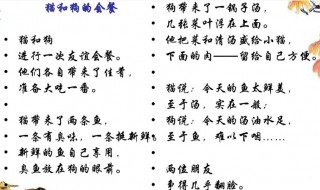 猫和狗的会餐
猫和狗
进行一次友谊会餐。
他们各自带来了佳肴，
准备大吃一番。
猫带来了两条鱼，
一条有臭味，一条挺新鲜，
新鲜的鱼自己享用，
臭鱼放在狗的眼前。
狗带来了一锅子汤，
几张菜叶浮在上面。
他把菜和清汤盛给小猫，
下面的肉——留给自己方便。
猫说：今天的鱼太鲜美，
至于汤，实在一般：
狗说：今天的汤油水足，
至于鱼，难以下咽……
两位朋友
争得几乎翻脸。